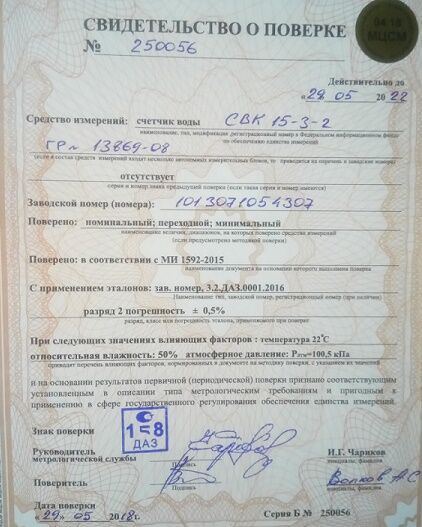 СВИДЕТЕЛЬСТВО О ПОВЕРКЕ
04.18
МЦСМ
№ 250056
Действительно до
«29» 05 2022
Средство измерений: счетчик воды СВК 15-3-2
наименование, тип, модификация, регистрационный номер в Федеральном информационном фонде
ГР№ 13869-08 по обеспечению единства измерений
(если в состав средств измерений входят несколько автономных измерительных блоков, то приводится их перечень и заводские номера)
отсутствует
серия и номер знака предыдущей поверки (если такая серия и номер имеются)
Заводской номер (номера): 1013071054307
Поверено: номинальный; переходной; минимальный
наименование величин, диапазонов, на которых поверено средство измерений
(если предусмотрено методикой поверки)
Поверено: в соответствии с МИ 1592-2015
наименование документа на основании которого выполнена поверка
С применением эталонов: зав. номер, 3.2.ДАЗ.0001.2016
(наименование, тип, заводской номер, регистрационный номер (при наличии)
разряд 2 погрешность ± 0,5%
разряд, класс или погрешность эталона, применяемого при поверке
При следующих значениях влияющих факторов : температура 22°С
относительная влажность: 50% атмосферное давление: Ратм=100,5 кПа
приводят перечень влияющих факторов, нормированных в документе на методику поверки, с указанием их значений
и на основании результатов первичной (периодической) поверки признано соответствующим
установленным в описании типа метрологическим требованиям и пригодным к
применению в сфере государственного регулирования обеспечения единства измерений.
Знак поверки
1 8
ДАЗ
Руководитель
метрологической службы
Подпись
И.Г. Чариков
инициалы, фамилия
Поверитель
Подпись
Волков А С
инициалы, фамилия
Дата поверки
«29» 05 2018 г.
Серия Б № 250056